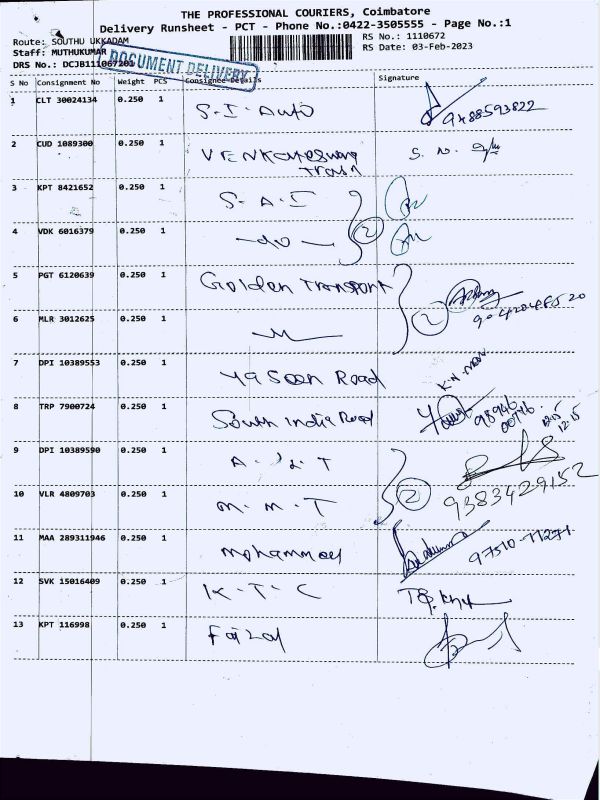 THE PROFESSIONAL COURIERS, Coimbatore
Delivery Runsheet - PCT - Phone No.:0422-3505555 - Page No.:1
Route: SOUTHU UKKADAM
RS No.: 1110672
Staff: MUTHUKUMAR
RS Date: 03-Feb-2023
DRS No.: DCJB111067201
DOCUMENT DELIVERY
S No Consignment No Weight PCS Consignee Details Signature
1 CLT 30024134 0.250 1 S-I-Auto 9488593822
2 CUD 1089300 0.250 1 S. N.
Trans
3 KPT 8421652 0.250 1 S-A-I
2
4 VDK 6016379 0.250 1 -do-
5 PGT 6120639 0.250 1 Golden Transport
2
6 MLR 3012625 0.250 1
7 DPI 10389553 0.250 1 Road
K-N-
8 TRP 7900724 0.250 1 South India Road 98946
12.15
9 DPI 10389590 0.250 1
2 9383429152
10 VLR 4809703 0.250 1 M-M-T
11 MAA 289311946 0.250 1 97510-71271
12 SVK 15016409 0.250 1 K-T-C
13 KPT 116998 0.250 1 Faizal